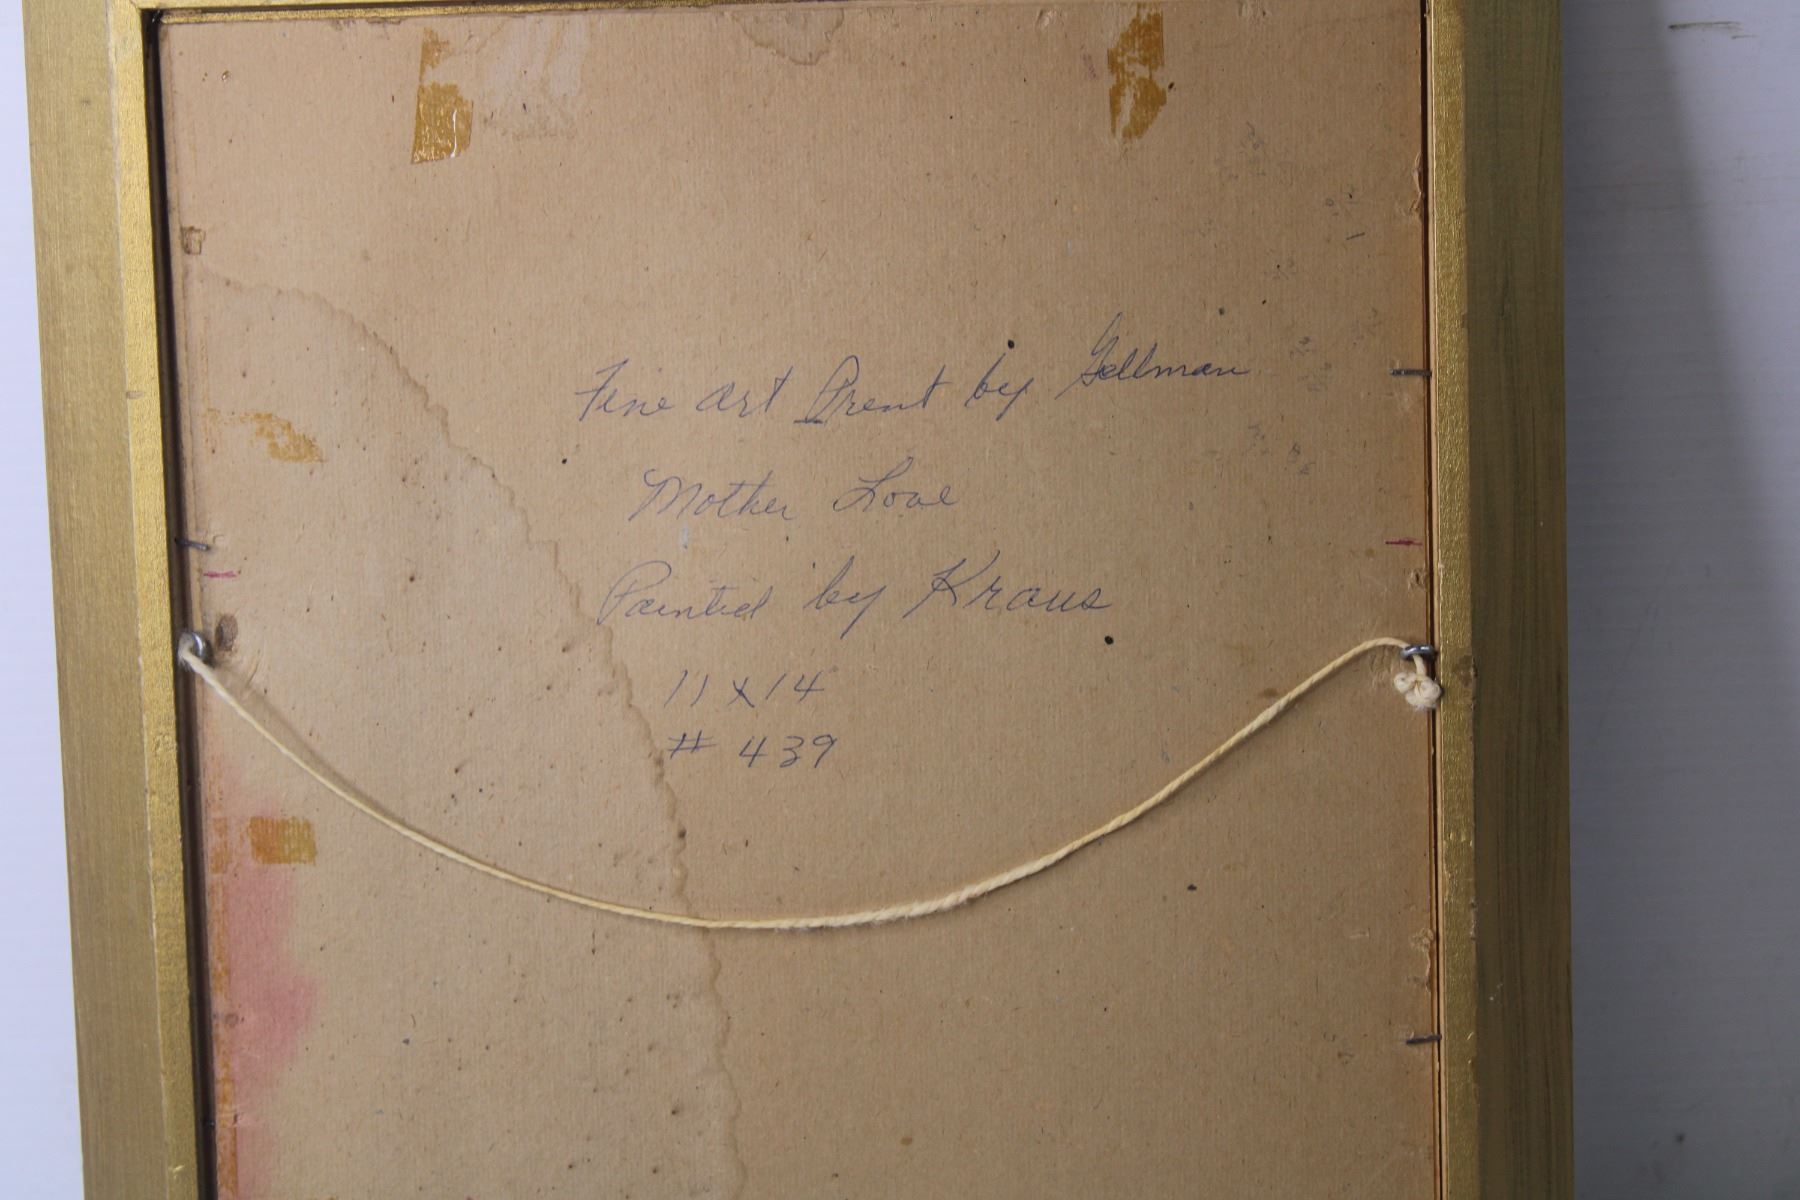 Fine art Prent by Gellman
Mother Love
Painted by Kraus
11 x 14
# 439